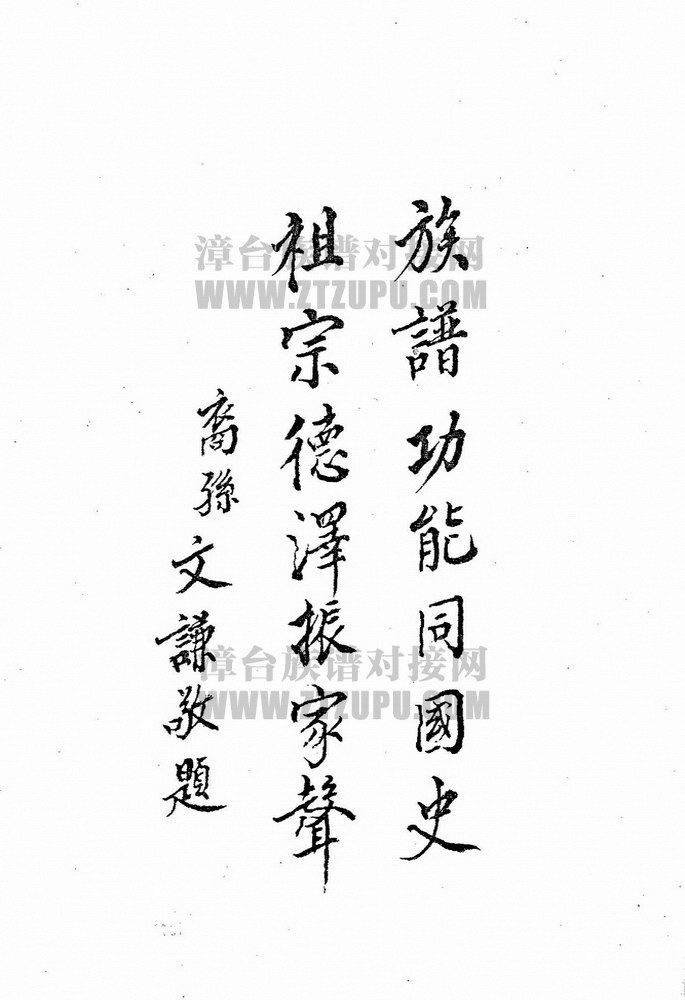 族譜功能同國史
祖宗德澤振家聲
裔孫文謙敬題
漳台族谱对接网
WWW.ZTZUPU.COM
漳台族谱对接网
WWW.ZTZUPU.COM